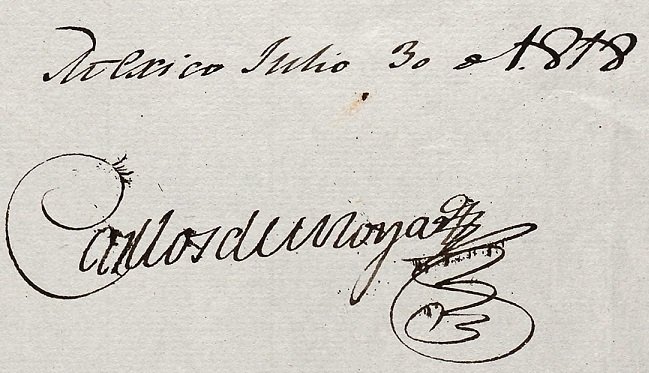 Mexico Julio 30 de 1818
Carlos de Moya